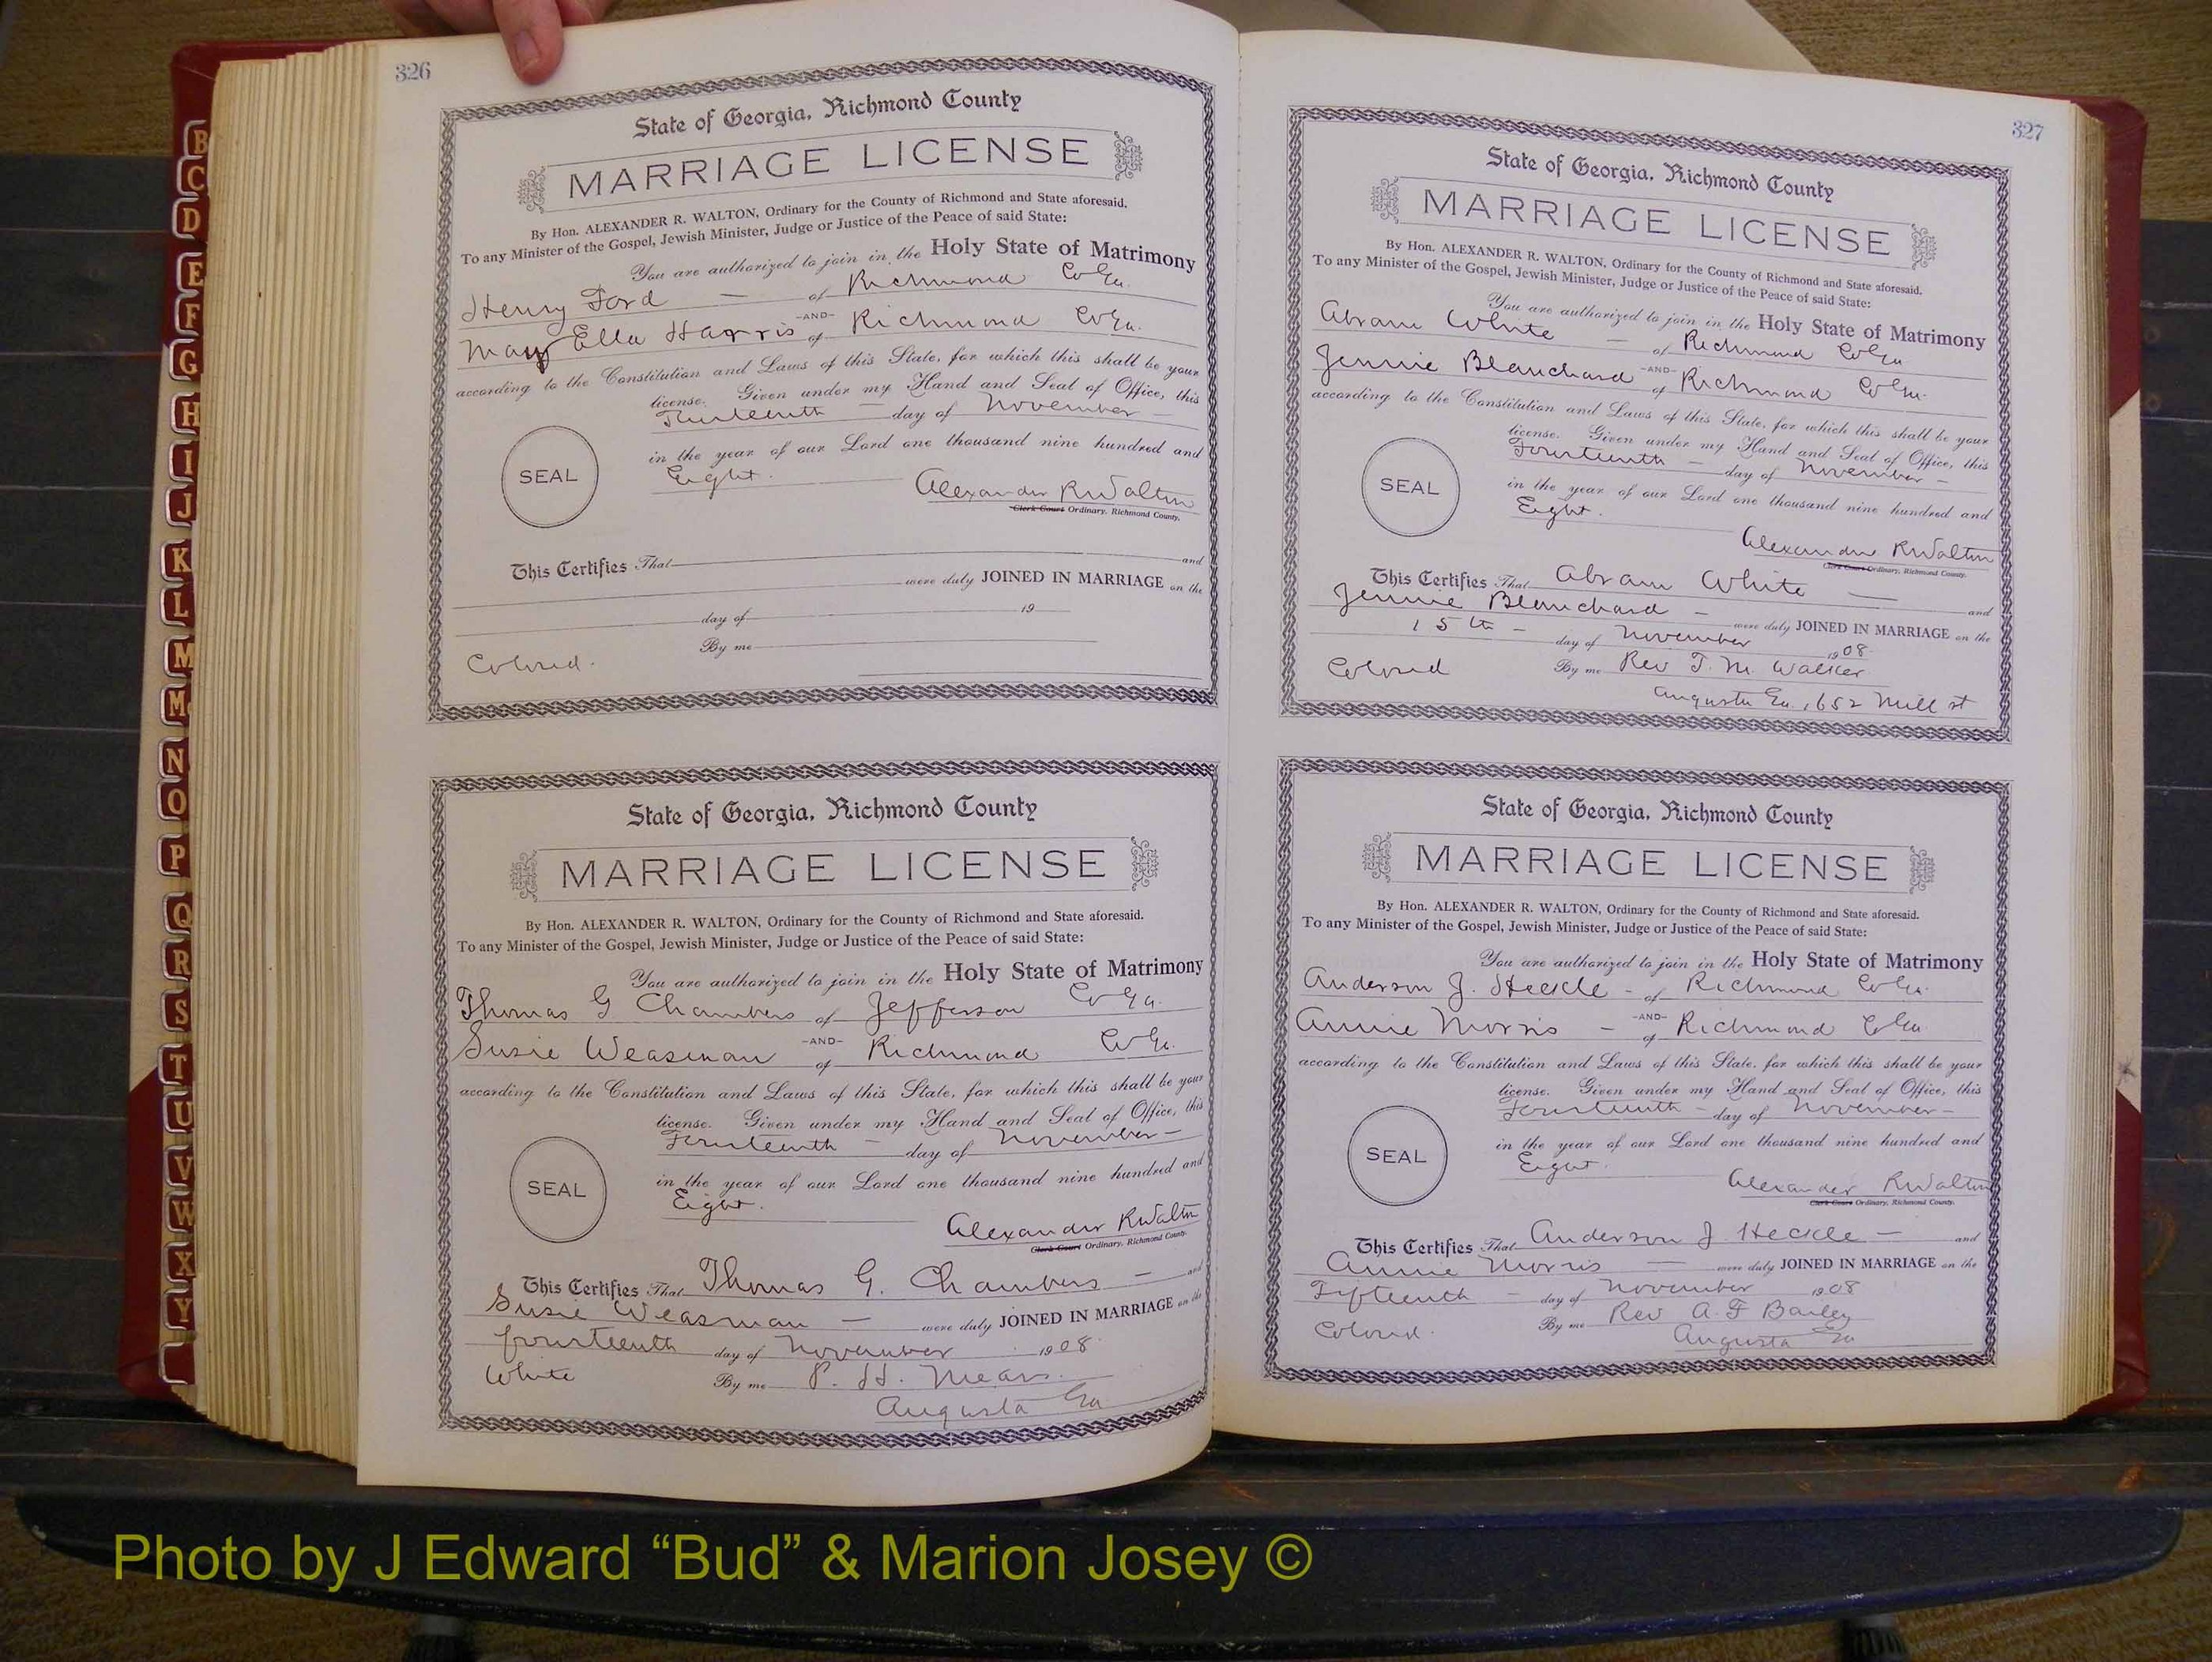 326
State of Georgia, Richmond County
MARRIAGE LICENSE
By Hon. ALEXANDER R. WALTON, Ordinary for the County of Richmond and State aforesaid.
To any Minister of the Gospel, Jewish Minister, Judge or Justice of the Peace of said State:
You are authorized to join in the Holy State of Matrimony
Henry Ford — of Richmond Co Ga.
-AND-
Mary Ella Harris of Richmond Co Ga.
according to the Constitution and Laws of this State, for which this shall be your
license. Given under my Hand and Seal of Office, this
day of November —
in the year of our Lord one thousand nine hundred and
Eight.
SEAL
Alexander R Walton
Clerk Court Ordinary, Richmond County.
This Certifies That and
were duly JOINED IN MARRIAGE on the
day of 19
By me
Colored.
State of Georgia, Richmond County
MARRIAGE LICENSE
By Hon. ALEXANDER R. WALTON, Ordinary for the County of Richmond and State aforesaid.
To any Minister of the Gospel, Jewish Minister, Judge or Justice of the Peace of said State:
You are authorized to join in the Holy State of Matrimony
Thomas G Chambers of Jefferson Co Ga.
-AND-
Susie Weasman of Richmond Co Ga.
according to the Constitution and Laws of this State, for which this shall be your
license. Given under my Hand and Seal of Office, this
Fourteenth — day of November —
in the year of our Lord one thousand nine hundred and
Eight.
SEAL
Alexander R Walton
Clerk Court Ordinary, Richmond County.
This Certifies That Thomas G. Chambers — and
Susie Weasman — were duly JOINED IN MARRIAGE on the
fourteenth day of November 1908
White By me P. H. Mears.
Augusta Ga.
327
State of Georgia, Richmond County
MARRIAGE LICENSE
By Hon. ALEXANDER R. WALTON, Ordinary for the County of Richmond and State aforesaid.
To any Minister of the Gospel, Jewish Minister, Judge or Justice of the Peace of said State:
You are authorized to join in the Holy State of Matrimony
Abram White — of Richmond Co Ga
-AND-
Jennie Blanchard of Richmond Co Ga.
according to the Constitution and Laws of this State, for which this shall be your
license. Given under my Hand and Seal of Office, this
Fourteenth — day of November —
in the year of our Lord one thousand nine hundred and
Eight.
SEAL
Alexander R Walton
Clerk Court Ordinary, Richmond County.
This Certifies That Abram White — and
Jennie Blanchard — were duly JOINED IN MARRIAGE on the
15th — day of November 1908
Colored By me Rev T. M. Walker
Augusta Ga., 652 Mill st
State of Georgia, Richmond County
MARRIAGE LICENSE
By Hon. ALEXANDER R. WALTON, Ordinary for the County of Richmond and State aforesaid.
To any Minister of the Gospel, Jewish Minister, Judge or Justice of the Peace of said State:
You are authorized to join in the Holy State of Matrimony
Anderson J. Heckle — of Richmond Co Ga.
-AND-
Annie Morris — of Richmond Co Ga
according to the Constitution and Laws of this State, for which this shall be your
license. Given under my Hand and Seal of Office, this
Fourteenth — day of November —
in the year of our Lord one thousand nine hundred and
Eight.
SEAL
Alexander R Walton
Clerk Court Ordinary, Richmond County.
This Certifies That Anderson J. Heckle — and
Annie Morris — were duly JOINED IN MARRIAGE on the
Fifteenth — day of November 1908
Colored. By me Rev A. F Bailey
Augusta Ga
B
C
D
E
F
G
H
I
J
K
L
M
Mc
N
O
P
Q
R
S
T
U
V
W
X
Y
Photo by J Edward “Bud” & Marion Josey ©